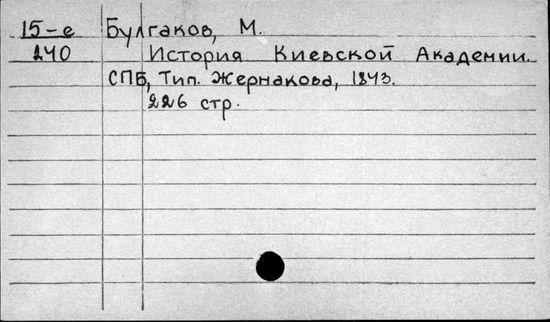 15-е Булгаков, М.
240 История Киевской Академии.
СПБ, Тип. Жернакова, 1843.
226 стр.